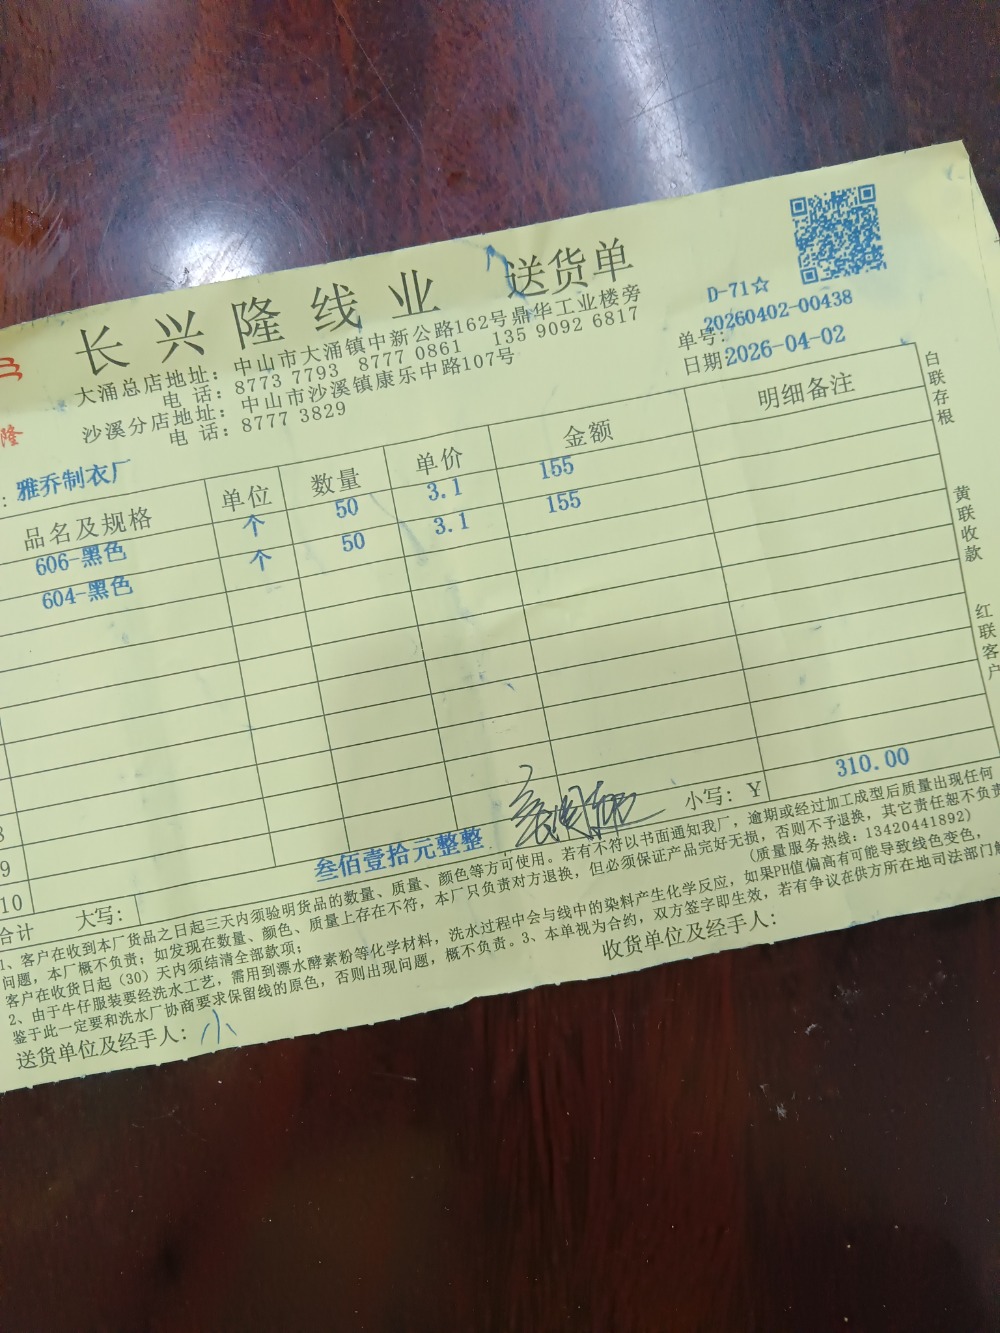 长兴隆线业 送货单
大涌总店地址：中山市大涌镇中新公路162号鼎华工业楼旁
电 话：8773 7793 8777 0861 135 9092 6817
沙溪分店地址：中山市沙溪镇康乐中路107号
电 话：8777 3829
D-71☆
单号：20260402-00438
日期2026-04-02
隆
：雅乔制衣厂
品名及规格 单位 数量 单价 金额 明细备注
606-黑色 个 50 3.1 155
604-黑色 个 50 3.1 155
8
9
10
合计 大写： 叁佰壹拾元整整 小写：Y 310.00
1、客户在收到本厂货品之日起三天内须验明货品的数量、质量、颜色等方可使用。若有不符以书面通知我厂，逾期或经过加工成型后质量出现任何
问题，本厂概不负责；如发现在数量、颜色、质量上存在不符，本厂只负责对方退换，但必须保证产品完好无损，否则不予退换，其它责任恕不负责
客户在收货日起（30）天内须结清全部款项； （质量服务热线：13420441892）
2、由于牛仔服装要经洗水工艺，需用到漂水酵素粉等化学材料，洗水过程中会与线中的染料产生化学反应，如果PH值偏高有可能导致线色变色，
鉴于此一定要和洗水厂协商要求保留线的原色，否则出现问题，概不负责。3、本单视为合约，双方签字即生效，若有争议在供方所在地司法部门解
送货单位及经手人：小 收货单位及经手人：
白联存根
黄联收款
红联客户